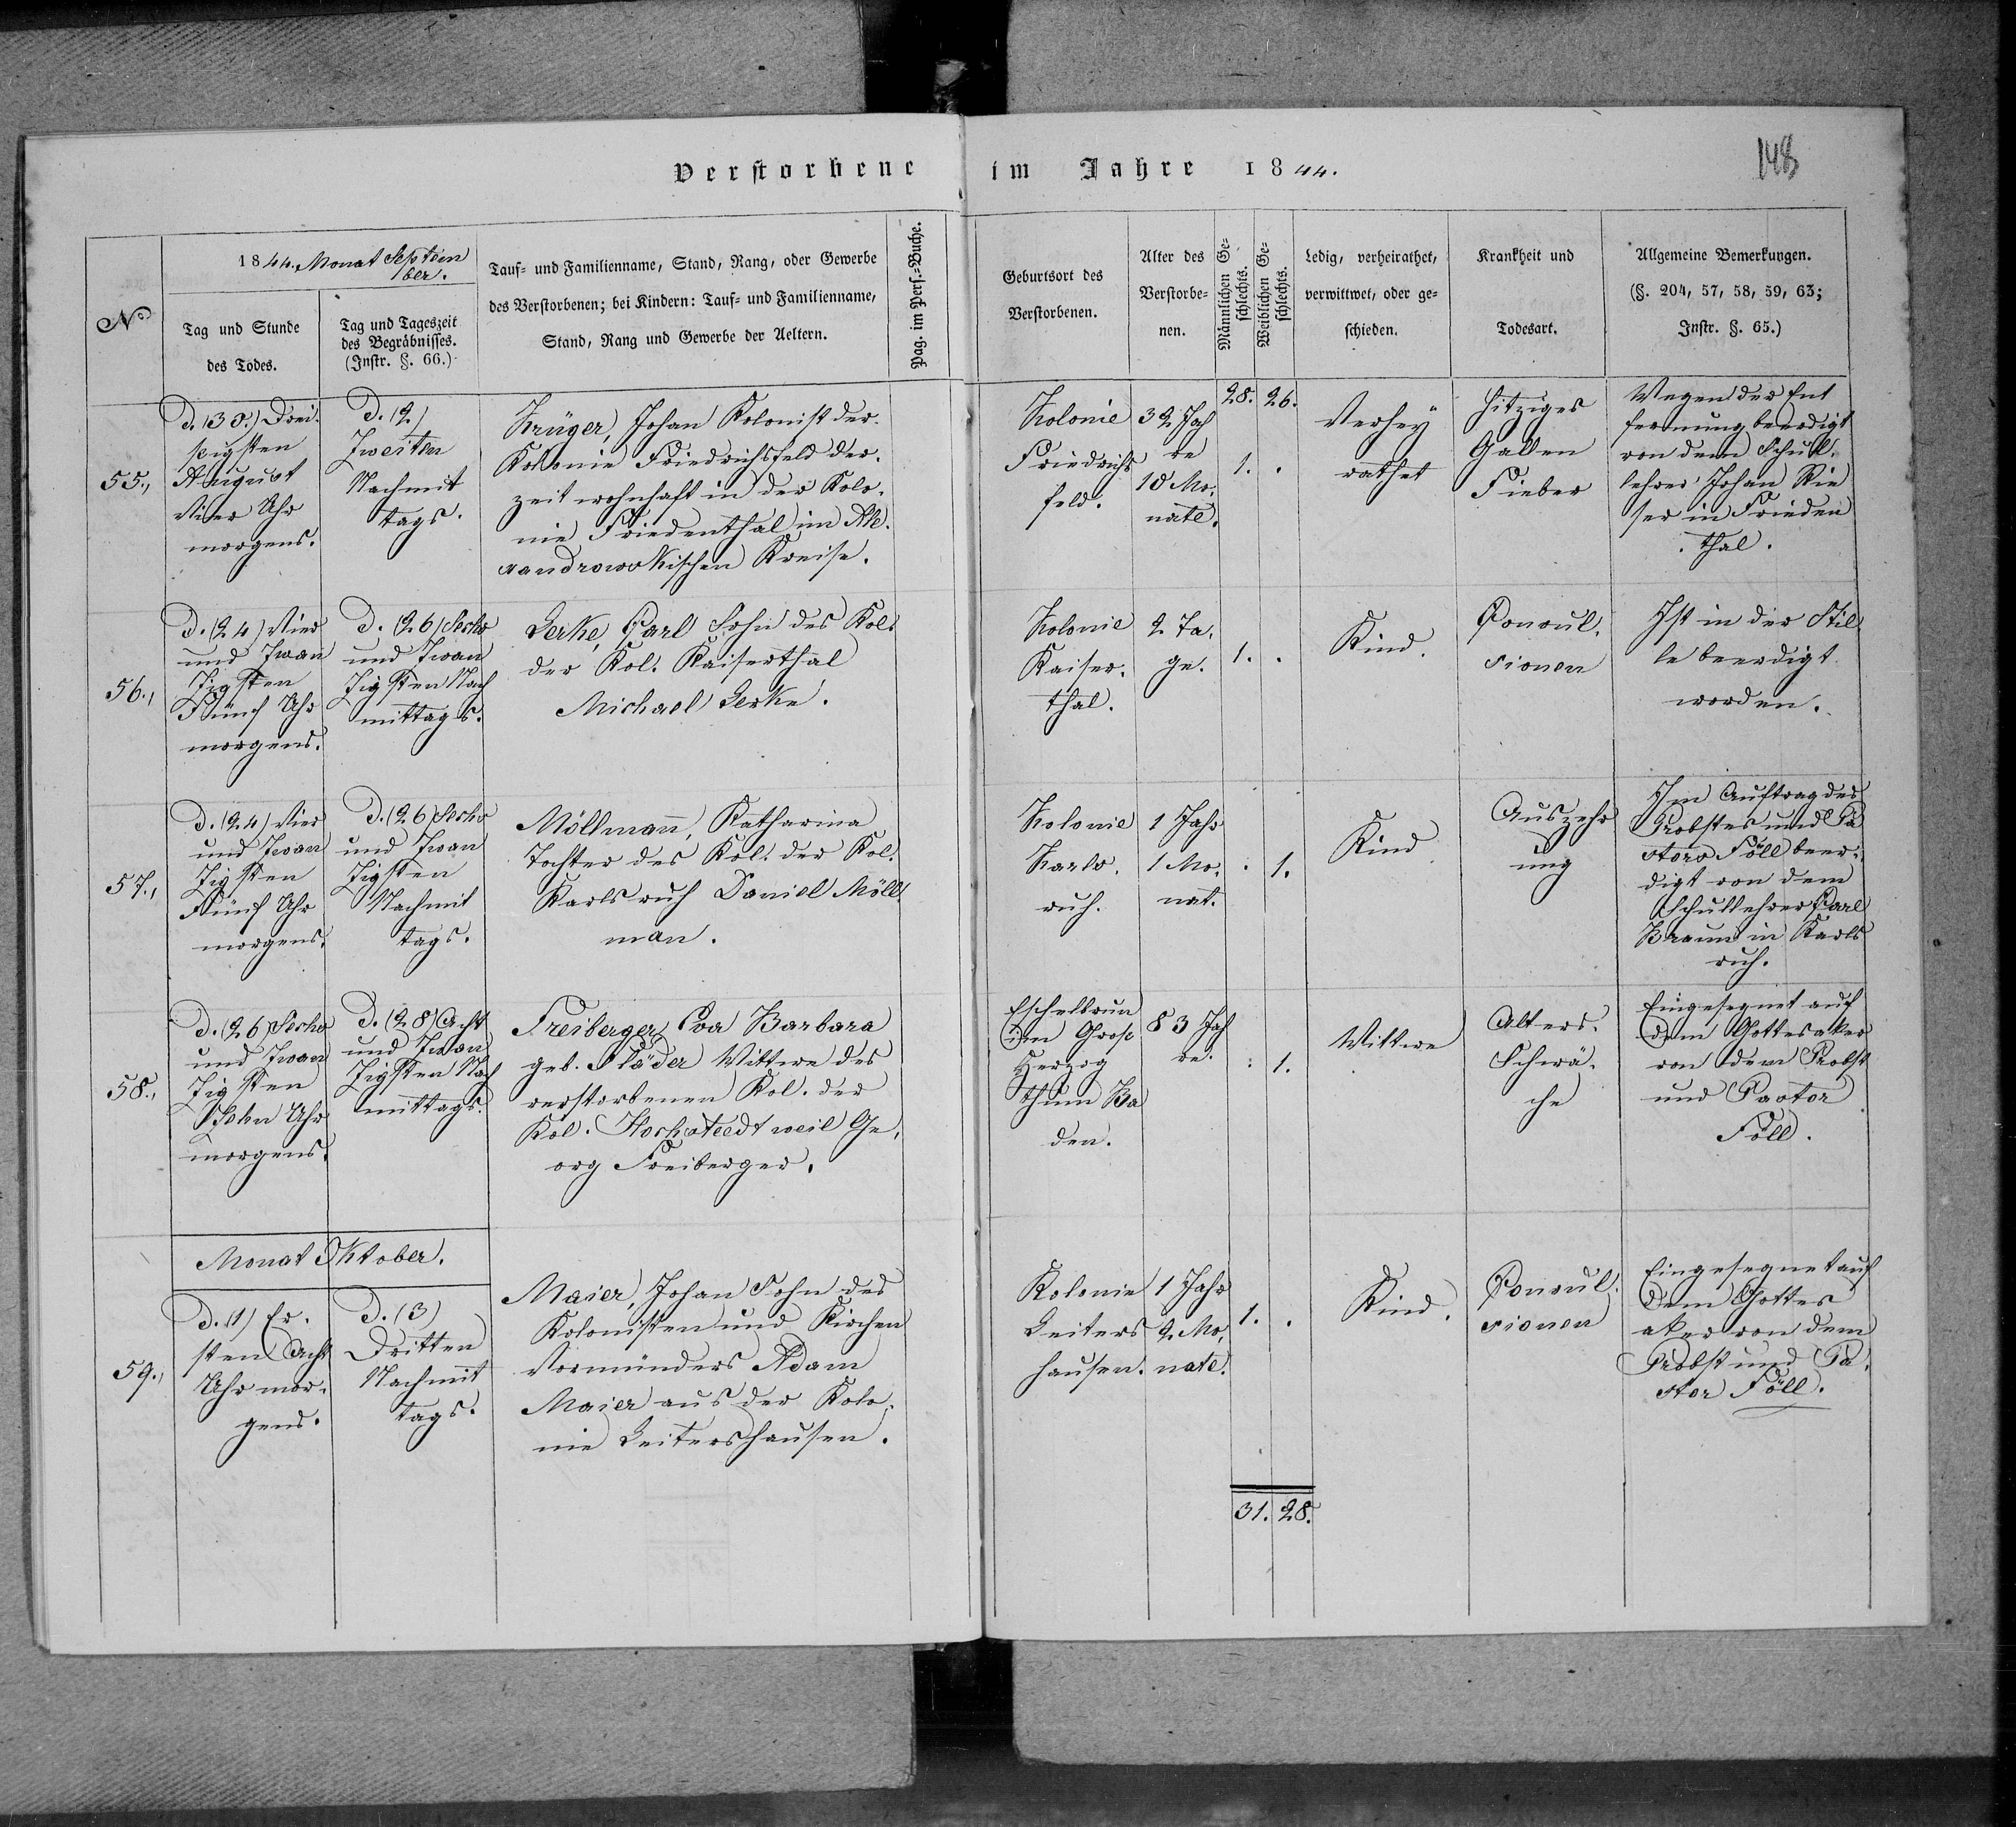 Verstorbene im Jahre 1844.
148
No
1844. Monat Septem
ber.
Tag und Stunde
des Todes.
Tag und Tageszeit
des Begräbnisses.
(Instr. §. 66.)
Tauf- und Familienname, Stand, Rang, oder Gewerbe
des Verstorbenen; bei Kindern: Tauf- und Familienname,
Stand, Rang und Gewerbe der Aeltern.
Pag. im Pers.-Buche.
Geburtsort des
Verstorbenen.
Alter des
Verstorbe-
nen.
Männlichen Ge-
schlechts.
Weiblichen Ge-
schlechts.
Ledig, verheirathet,
verwittwet, oder ge-
schieden.
Krankheit und
Todesart.
Allgemeine Bemerkungen.
(§. 204, 57, 58, 59, 63;
Instr. §. 65.)
28. 26.
55.,
D. (30.) Drei
sigsten
August
Vier Uhr
morgens.
D. (2)
Zweiten
Nachmit
tags.
Krüger, Johan Kolonist der
Kolonie Friedrichsfeld der
zeit wohnhaft in der Kolo-
nie Friedenthal im Ale-
xandrowskischen Kreise.
Kolonie
Friedrichs
feld.
32 Jah
re
10 Mo-
nate.
1. .
Verhey
rathet
Hitziges
Gallen
Fieber
Wegen der Ent
fernung beerdigt
von dem Schul-
lehrer Johan Rie
ser in Frieden
thal.
56.,
D. (24) Vier
und Zwan
zigsten
Fünf Uhr
morgens.
D. (26) Sechs
und Zwan
zigsten Nach
mittags.
Lerke, Carl Sohn des Kol.
der Kol. Kaiserthal
Michael Lerke.
Kolonie
Kaiser-
thal.
2 Ta-
ge.
1. .
Kind.
Convul-
sionen
Ist in der Stil
le beerdigt
worden.
57.,
D. (24) Vier
und Zwan
zigsten
Fünf Uhr
morgens.
D. (26) Sechs
und Zwan
zigsten
Nachmit
tags.
Möllmann, Katharina
Tochter des Kol. der Kol.
Karlsruh Daniel Möll-
man.
Kolonie
Karls-
ruh.
1 Jahr
1 Mo-
nat.
. 1.
Kind
Auszehr
ung
Im Auftrag des
Probstes und Pa
stors Föll beer-
digt von dem
Schullehrer Carl
Braun in Karls
ruh.
58.,
D. (26) Sechs
und Zwan
zigsten
Zehn Uhr
morgens.
D. (28) Acht
und Zwan
zigsten Nach
mittags.
Freiberger, Eva Barbara
geb. Wittwe des
verstorbenen Kol. der
Kol. Hochstedt weil Ge-
org Freiberger.
Eschelbrun
im Gros
Herzog
thum Ba
den.
83 Jah
re.
. 1.
Wittwe
Alters-
Schwä-
che
Eingesegnet auf
dem Gottesaker
von dem Probst
und Pastor
Föll.
Monat Oktober.
59.,
D. (1) Er-
sten Acht
Uhr mor-
gens.
D. (3)
Dritten
Nachmit
tags.
Maier, Johan Sohn des
Kolonisten und Kirchen
Vormünders Adam
Maier aus der Kolo-
nie Leitershausen.
Kolonie
Leiters
hausen.
1 Jahr
2 Mo-
nate.
1. .
Kind.
Convul-
sionen
Eingesegnet auf
dem Gottes
aker von dem
Probst und Pa-
stor Föll.
31. 28.